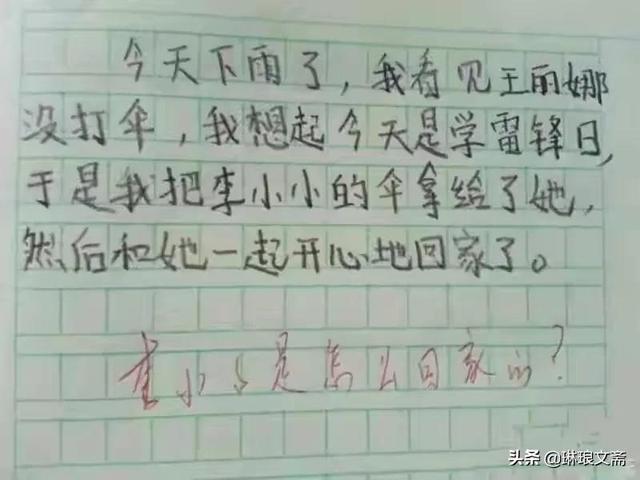 今天下雨了，我看见王丽娜
没打伞，我想起今天是学雷锋日，
于是我把李小小的伞拿给了她，
然后和她一起开心地回家了。
李小小是怎么回家的？
头条 @琳琅文斋